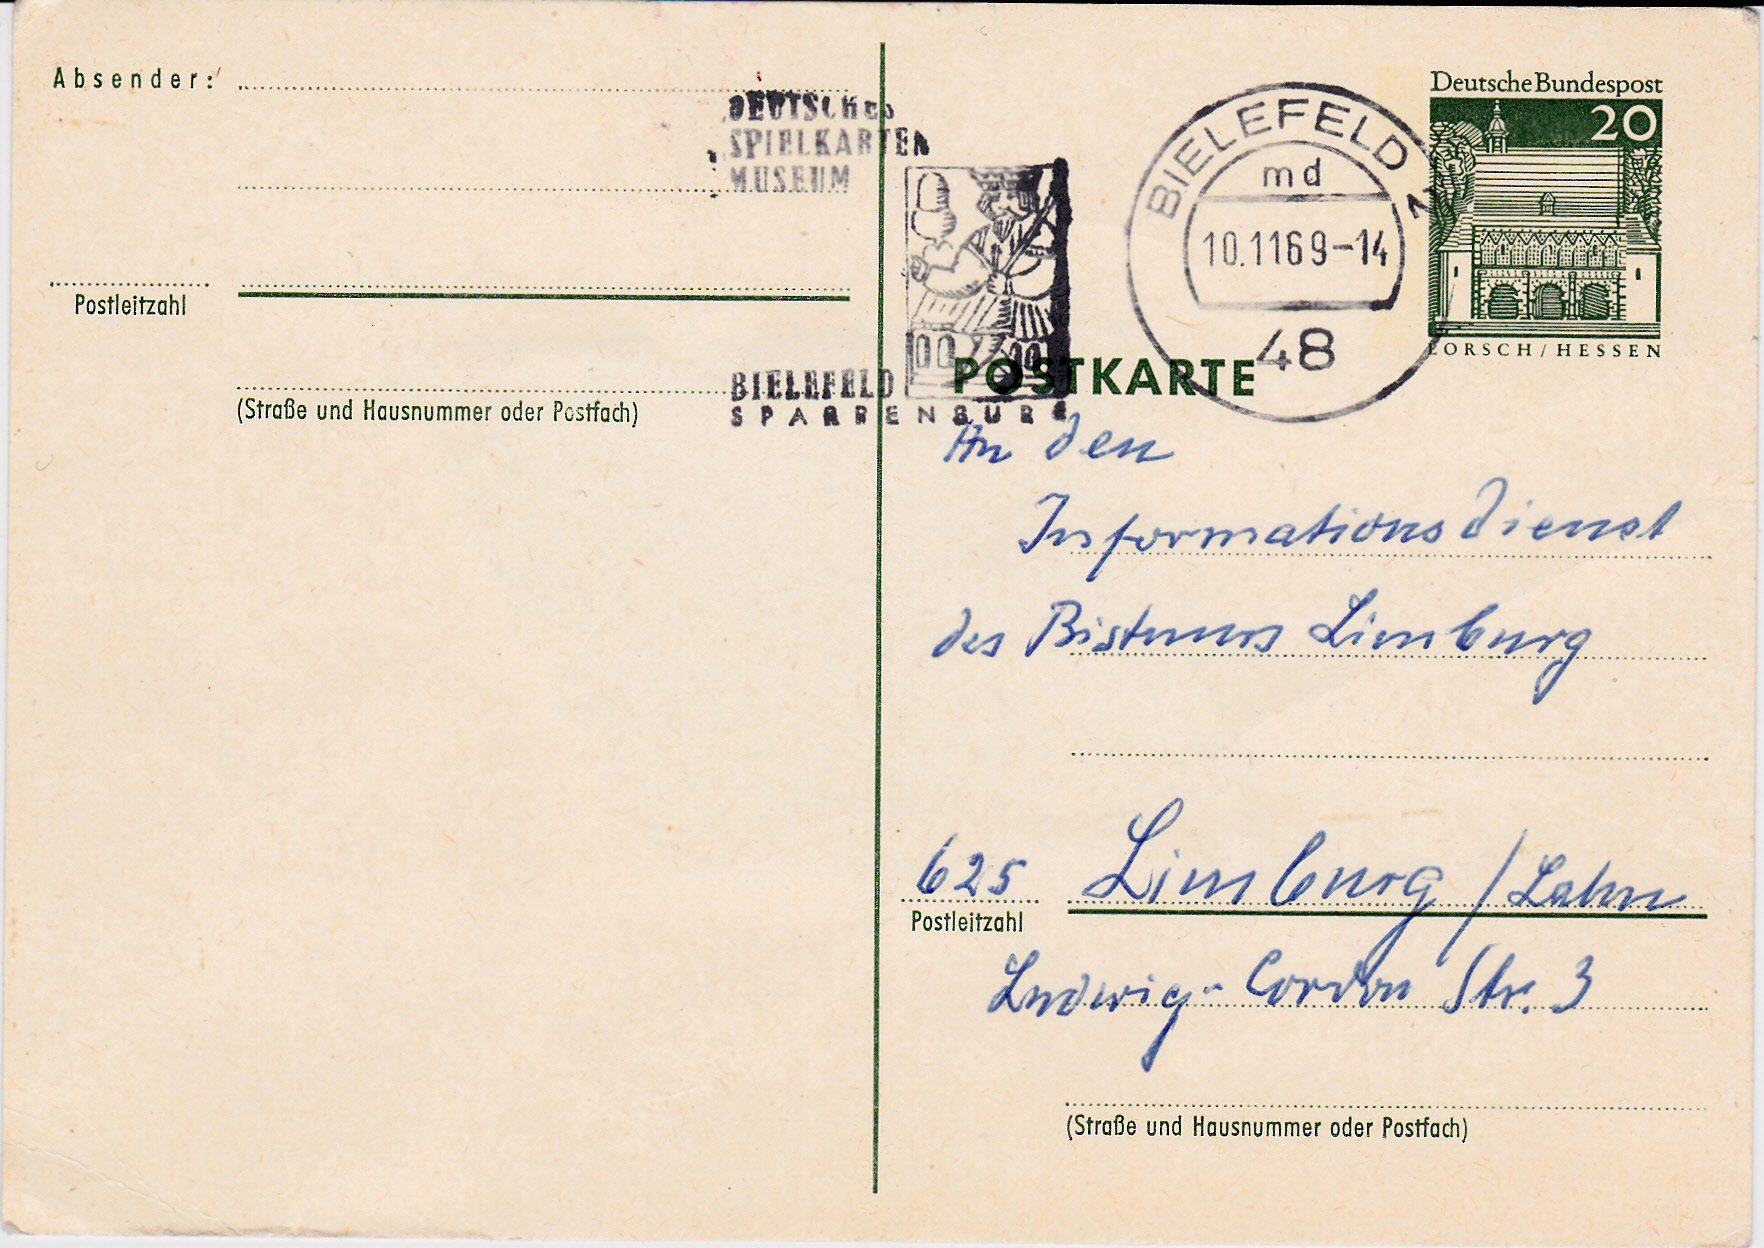 Absender:
DEUTSCHES
SPIELKARTEN
MUSEUM
Postleitzahl
(Straße und Hausnummer oder Postfach)
BIELEFELD
SPARRENBURG
BIELEFELD 1
md
10.1169-14
48
Deutsche Bundespost
20
LORSCH/HESSEN
POSTKARTE
An den
Informationsdienst
des Bistums Limburg
625 Limburg/Lahn
Postleitzahl
Ludwig-Cordon Str. 3
(Straße und Hausnummer oder Postfach)